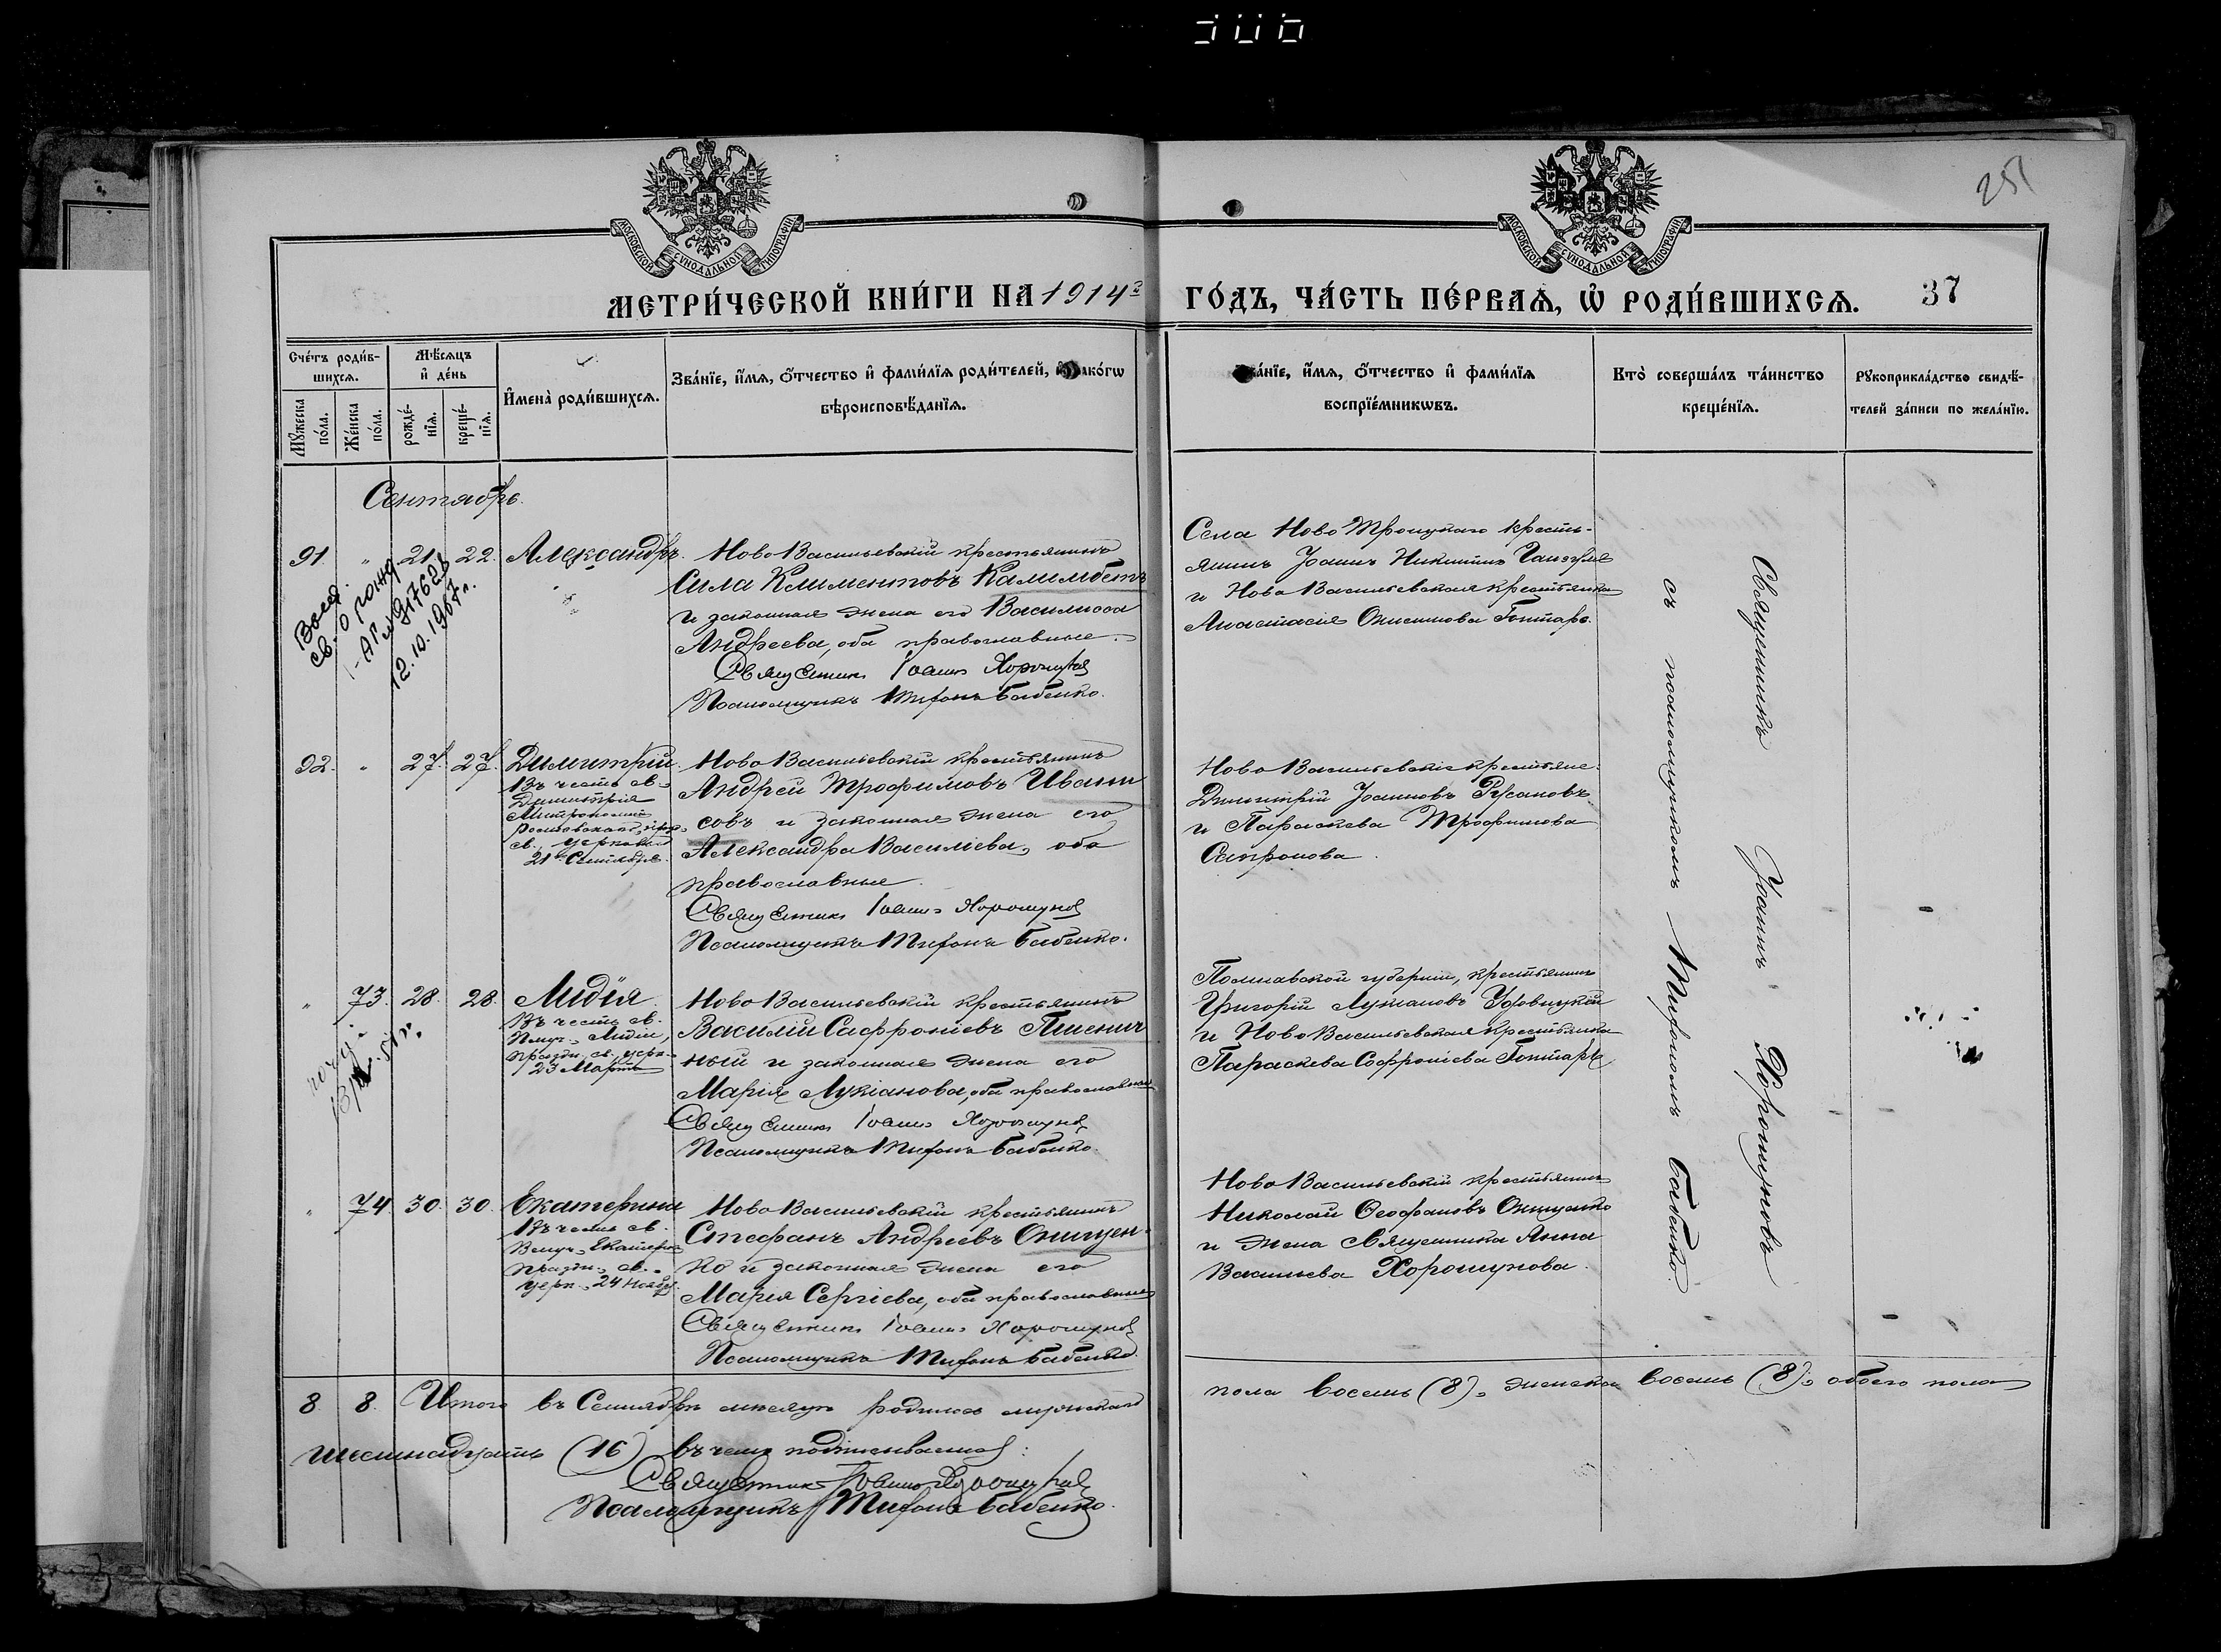 251
МОСКОВСКОЙ СѴНОДАЛЬНОЙ ТИПОГРАФІИ
МОСКОВСКОЙ СѴНОДАЛЬНОЙ ТИПОГРАФІИ
МЕТРИ́ЧЕСКОЙ КНИ́ГИ НА 1914 ГО́ДЪ, ЧА́СТЬ ПЕ́РВАѦ, Ѡ҆ РОДИ́ВШИХСѦ. 37
Сче́тъ роди́вшихсѧ.
Мꙋ́жеска по́ла.
Же́нска по́ла.
Мѣ́сѧцъ и҆ де́нь
рожде́нїѧ.
креще́нїѧ.
И҆мена̀ роди́вшихсѧ.
Зва́нїе, и҆́мѧ, ѻ҆́тчество и҆ фами́лїѧ роди́телей, и҆ како́гѡ
вѣроисповѣ́данїѧ.
Зва́нїе, и҆́мѧ, ѻ҆́тчество и҆ фами́лїѧ
воспрїе́мникѡвъ.
Кто̀ соверша́лъ та́инство
креще́нїѧ.
Рꙋкоприкла́дство свидѣ́-
телей за́писи по жела́нїю.
Сентябрь.
91. " 21. 22. Александръ.
св. о рожд
1-АП № 317628
12.10.1967г.
НовоВасильевскій крестьянинъ
Сила Климентовъ Калимбетъ
и законная жена его Василисса
Андреева, оба православные.
Священникъ Іоаннъ Хорошуновъ
Псаломщикъ Тифонъ Бабенко.
Села НовоТроицкаго кресть-
янинъ Іоаннъ Никитинъ
и НовоВасильевская крестьянка
Анастасія Онисимова Гонтарь.
92. " 27. 27. Димитрій.
Въ честь св.
Димитрія
Митрополита
Ростовскаго, празд.
св. церковью
21го Сентября.
НовоВасильевскій крестьянинъ
Андрей Трофимовъ Иван
совъ и законная жена его
Александра Василіева, оба
православные.
Священникъ Іоаннъ Хорошуновъ
Псаломщикъ Тифонъ Бабенко.
НовоВасильевскіе крестьяне:
Димитрій Іоанновъ Русановъ
и Параскева Трофимова
Сапронова.
" 73. 28. 28. Лидія
51г.
Въ честь св.
Муч. Лидіи,
праздн. св. церк.
23 Марта
НовоВасильевскій крестьянинъ
Василій Сафроніевъ Пшенич
ный и законная жена его
Марія Лукіанова, оба православные
Священникъ Іоаннъ Хорошуновъ
Псаломщикъ Тифонъ Бабенко.
Полтавской губерніи, крестьянинъ
Григорій Лукіановъ Удовицкій
и НовоВасильевская крестьянка
Параскева Софроніева Гонтарь
" 74. 30. 30. Екатерина
Въ честь св.
Велмуч. Екатерины
праздн. св.
церк. 24 Ноября.
НовоВасильевскій крестьянинъ
Стефанъ Андреевъ Онищен-
ко и законная жена его
Марія Сергіева, оба православные
Священникъ Іоаннъ Хорошуновъ
Псаломщикъ Тифонъ Бабенко.
НовоВасильевскій крестьянинъ
Николай Ѳеофановъ Онищенко
и жена Священника Анна
Васильева Хорошунова.
Священникъ Іоаннъ Хорошуновъ
съ псаломщикомъ Тифономъ Бабенко.
8. 8. Итого въ Сентябрѣ мѣсяцѣ родилось мужскаго пола восемь (8), женскаго восемь (8), обоего пола
шестнадцать (16) въ чемъ подписываемся:
Священникъ Іоаннъ Хорошуновъ
Псаломщикъ Тифонъ Бабенко.